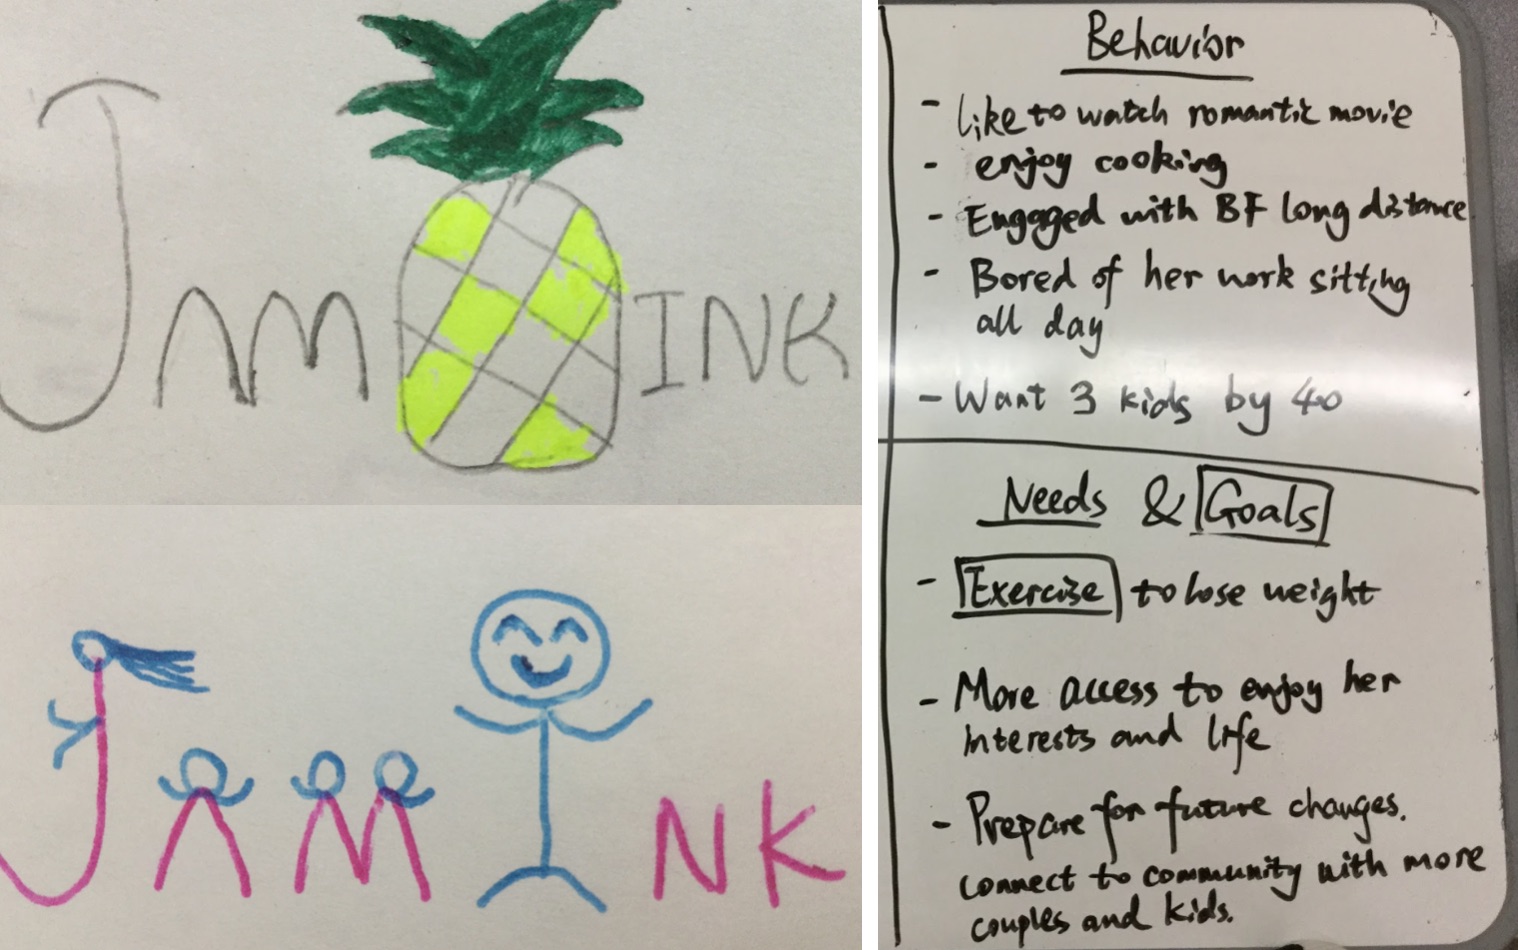 JMM INK
JAMINK
Behavior
- Like to watch romantic movie
- enjoy cooking
- Engaged with BF long distance
- Bored of her work sitting
all day
- Want 3 kids by 40
Needs & Goals
- Exercise to lose weight
- More access to enjoy her
interests and life
- Prepare for future changes.
connect to community with more
couples and kids.